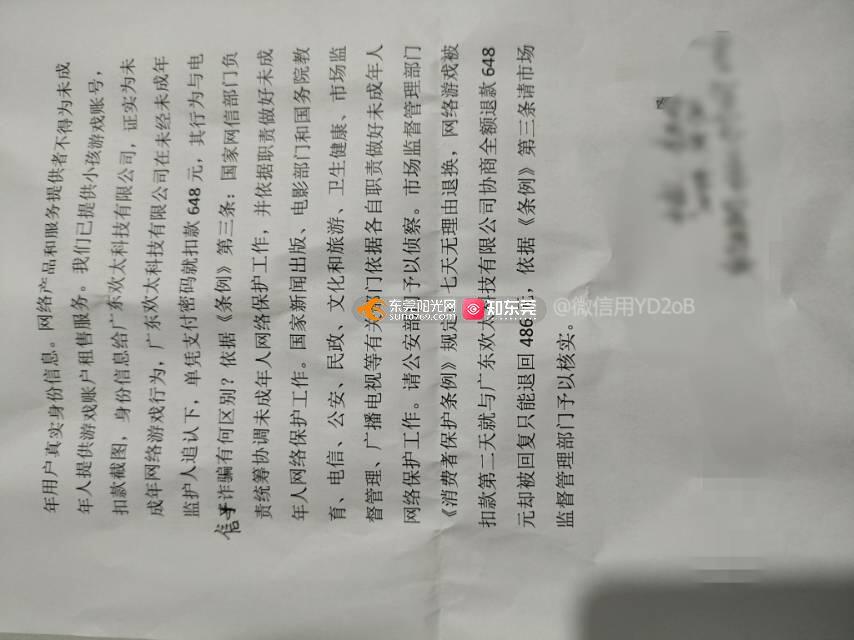 年用户真实身份信息。网络产品和服务提供者不得为未成
年人提供游戏账户租售服务。我们已提供小孩游戏账号，
扣款截图，身份信息给广东欢太科技有限公司，证实为未
成年网络游戏行为，广东欢太科技有限公司在未经未成年
监护人追认下，单凭支付密码就扣款 648 元，其行为与电
信诈骗有何区别？依据《条例》第三条：国家网信部门负
责统筹协调未成年人网络保护工作，并依据职责做好未成
年人网络保护工作。国家新闻出版、电影部门和国务院教
育、电信、公安、民政、文化和旅游、卫生健康、市场监
督管理、广播电视等有关部门依据各自职责做好未成年人
网络保护工作。请公安部门予以侦察。市场监督管理部门
《消费者保护条例》规定 七天无理由退换，网络游戏被
扣款第二天就与广东欢太科技有限公司协商全额退款 648
元却被回复只能退回 486 ，依据《条例》第三条请市场
监督管理部门予以核实。
东莞阳光网
sun0769.com
知东莞
@微信用YD2oB